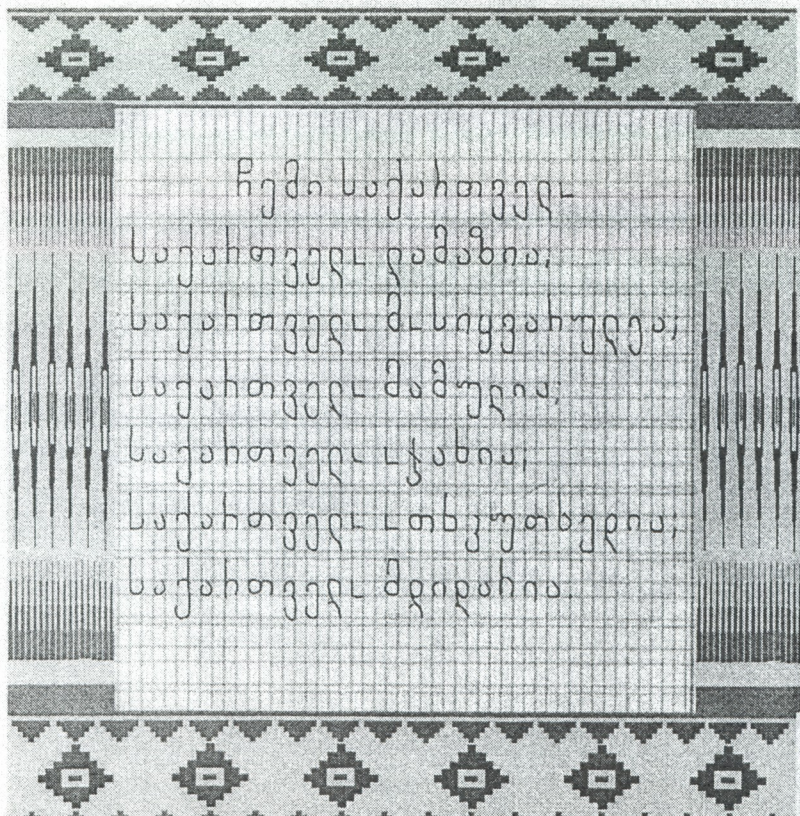 ჩემი საქართველო
საქართველო ლამაზია;
საქართველო მოსიყვარულეა;
საქართველო მამულია;
საქართველო ოჯახია;
საქართველო ოთხკუთხედია;
საქართველო მდიდარია.